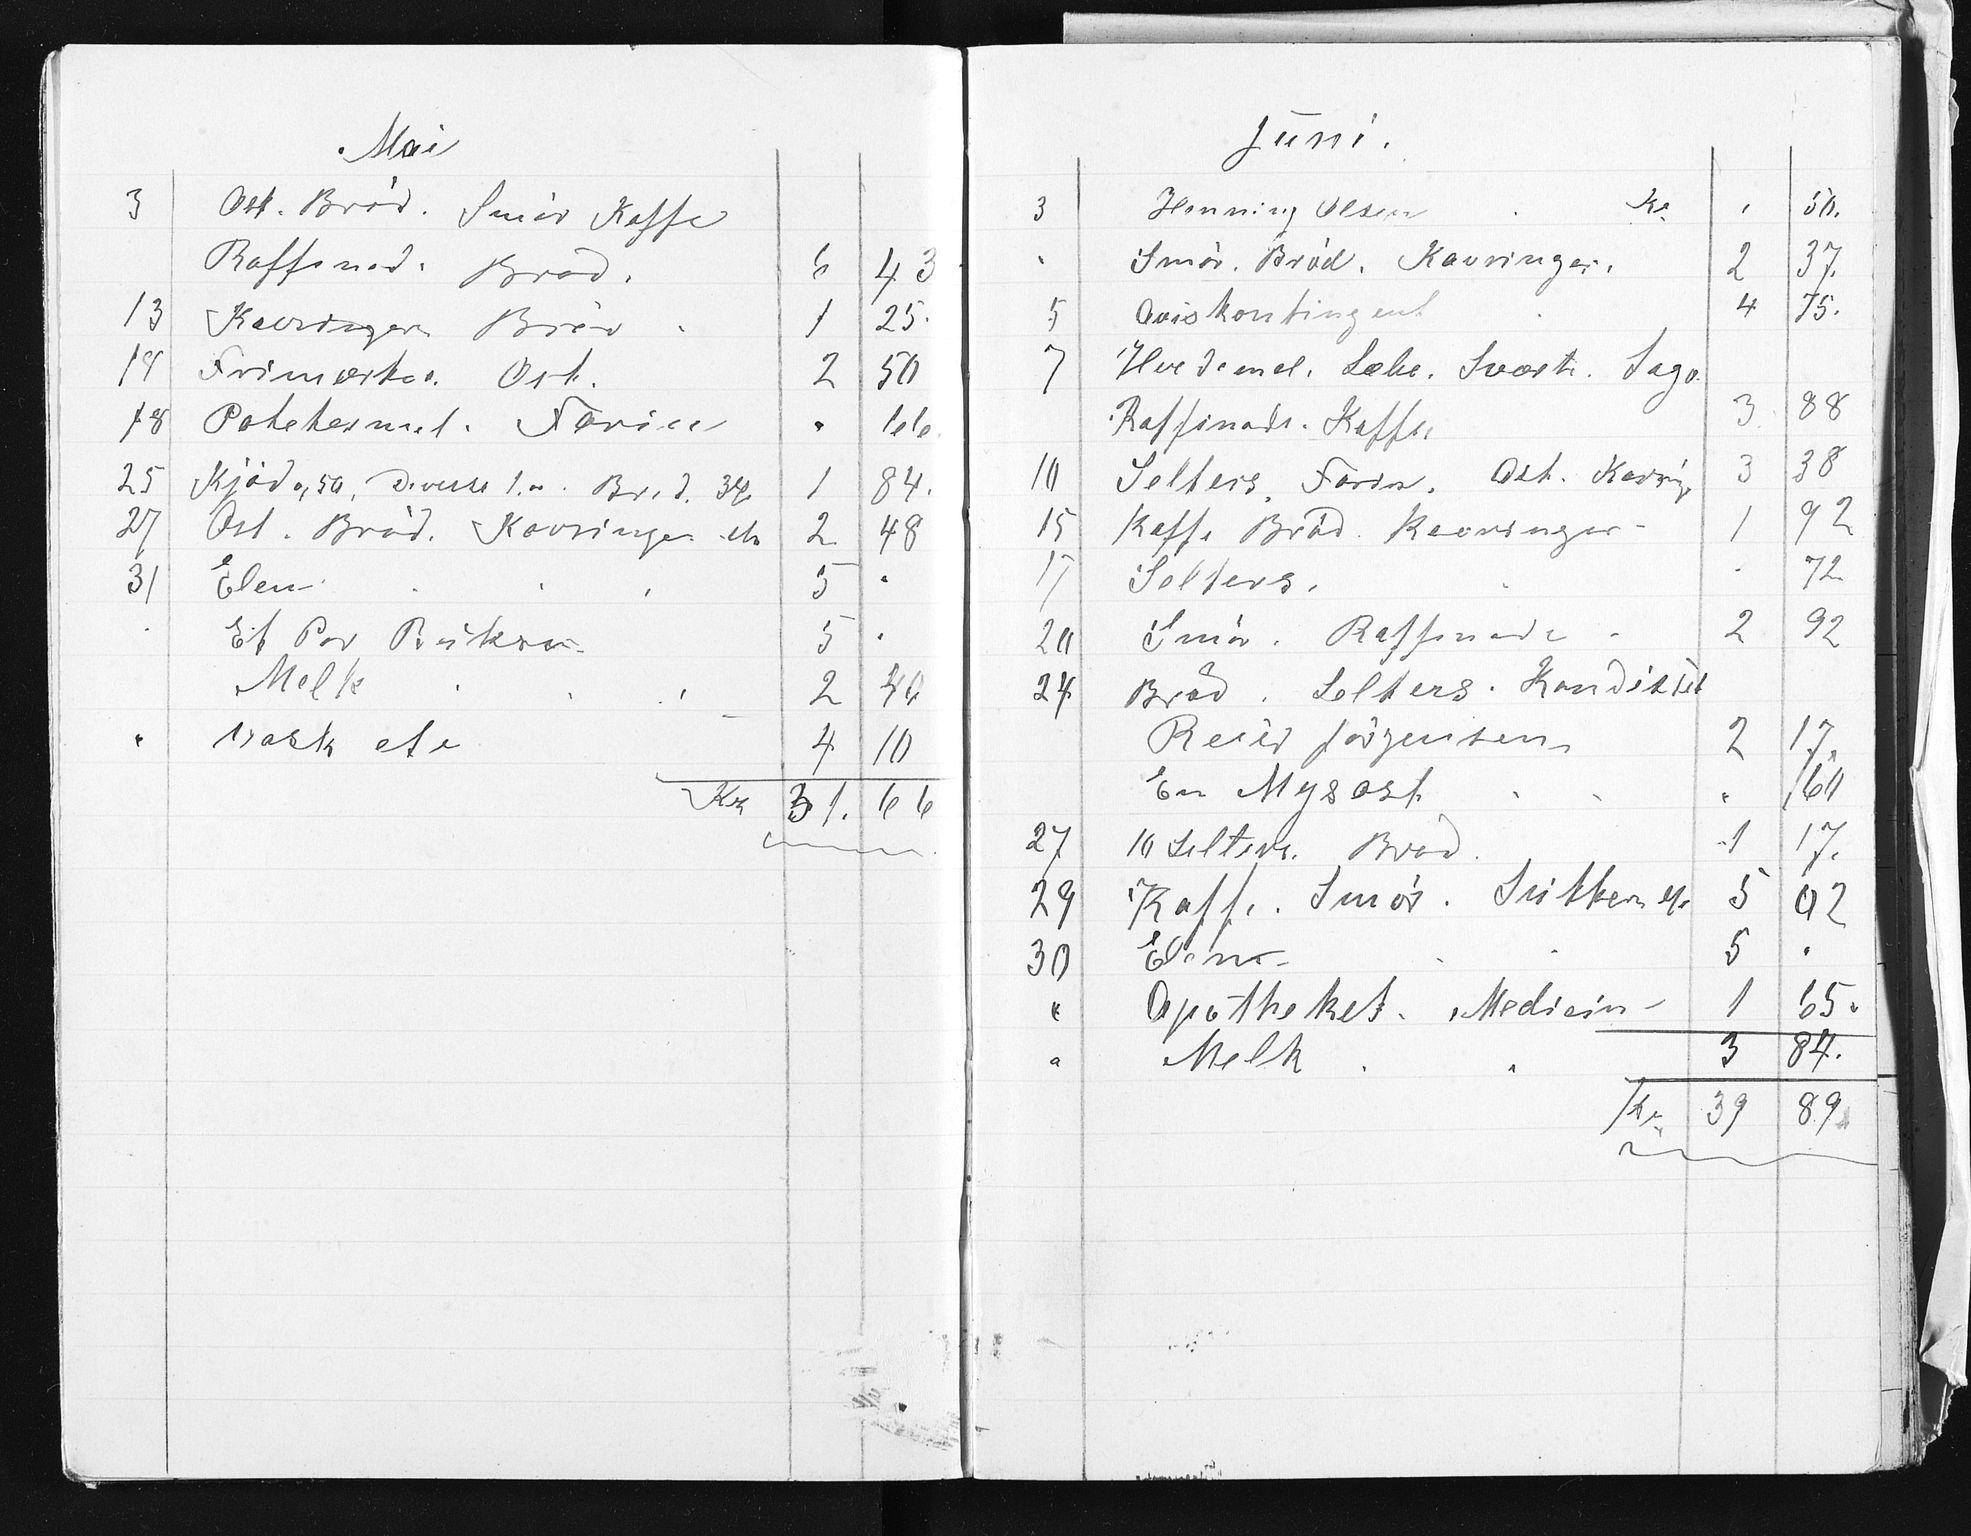 Mai
3 Ost. Brød. Smør Kaffe
Raffinad. Brød. 6 43
13 Kavringer Brød . 1 25.
14 Frimærker. Ost. 2 50
18 Potetesmel. Farin " 66.
25 Kjød 0,50, Diverse 1." . Brød. 34 1 84.
27 Ost. Brød. Kavringer etc 2 48
31 Elen 5 "
" Et Par Buksr 5 "
Melk 2 40
" Vask etc 4 10
Kr 31. 66
Juni.
3 Henning Olsen Kr. " 50.
" Smør. Brød. Kavringer. 2 37.
5 Aviskontingent 4 75.
7 Hvedemel. Læbe. Sværte. Sago.
Raffinade. Kaffe 3 88
10 Selters. Farin. Ost. Kavring. 3 38
15 Kaffe Brød. Kavringer - 1 92
17 Selters. " 72
20 Smør. Raffinade . 2 92
24 Brød. Selters. Konditter
Reier Jörgensen 2 17.
En Mysost. " 60
27 10 Selters. Brød. 1 17.
29 Kaffe. Smør. Sukker etc 5 02
30 Elen 5 "
" Apotheket. Medicin - 1 65.
" Melk 3 84.
Kr. 39 89